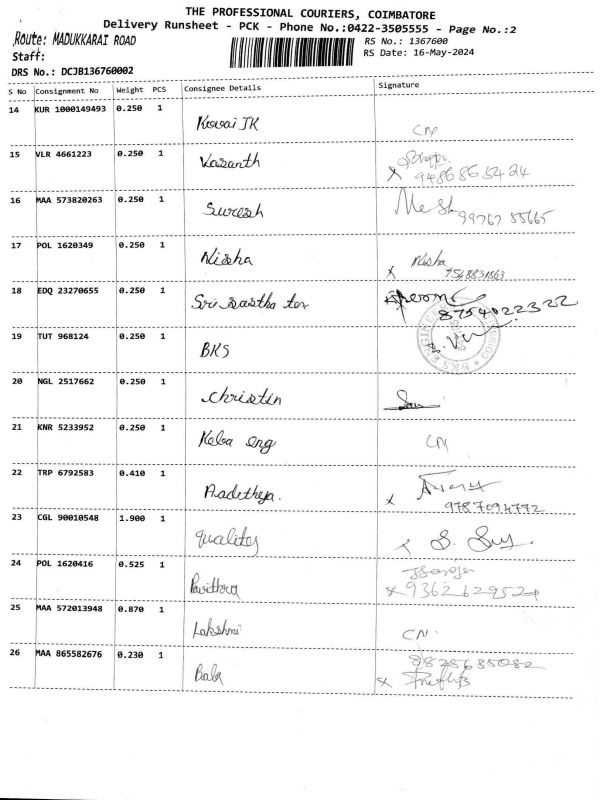 THE PROFESSIONAL COURIERS, COIMBATORE
Delivery Runsheet - PCK - Phone No.:0422-3505555 - Page No.:2
Route: MADUKKARAI ROAD
RS No.: 1367600
Staff:
RS Date: 16-May-2024
DRS No.: DCJB136760002
S No Consignment No Weight PCS Consignee Details Signature
14 KUR 1000149493 0.250 1
Kovai JK CN
15 VLR 4661223 0.250 1
Vasanth
X 9486865424
16 MAA 573820263 0.250 1
Suresh 99767 55665
17 POL 1620349 0.250 1
Nisha Nisha
X
18 EDQ 23270655 0.250 1
Sri Sastha tex
8754022322
19 TUT 968124 0.250 1
BKS
20 NGL 2517662 0.250 1
Christin
21 KNR 5233952 0.250 1
Kelba eng CN
22 TRP 6792583 0.410 1
Aadethya. X
9787094772
23 CGL 90010548 1.900 1
Qualitoy X
24 POL 1620416 0.525 1
Pavithra X 9362629524
25 MAA 572013948 0.870 1
Lakshmi CN.
26 MAA 865582676 0.230 1
9825635082
Bala X